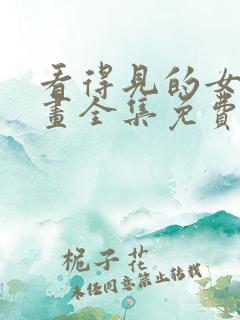 看得见的女
画全集免费
栀子花
未经同意禁止转载